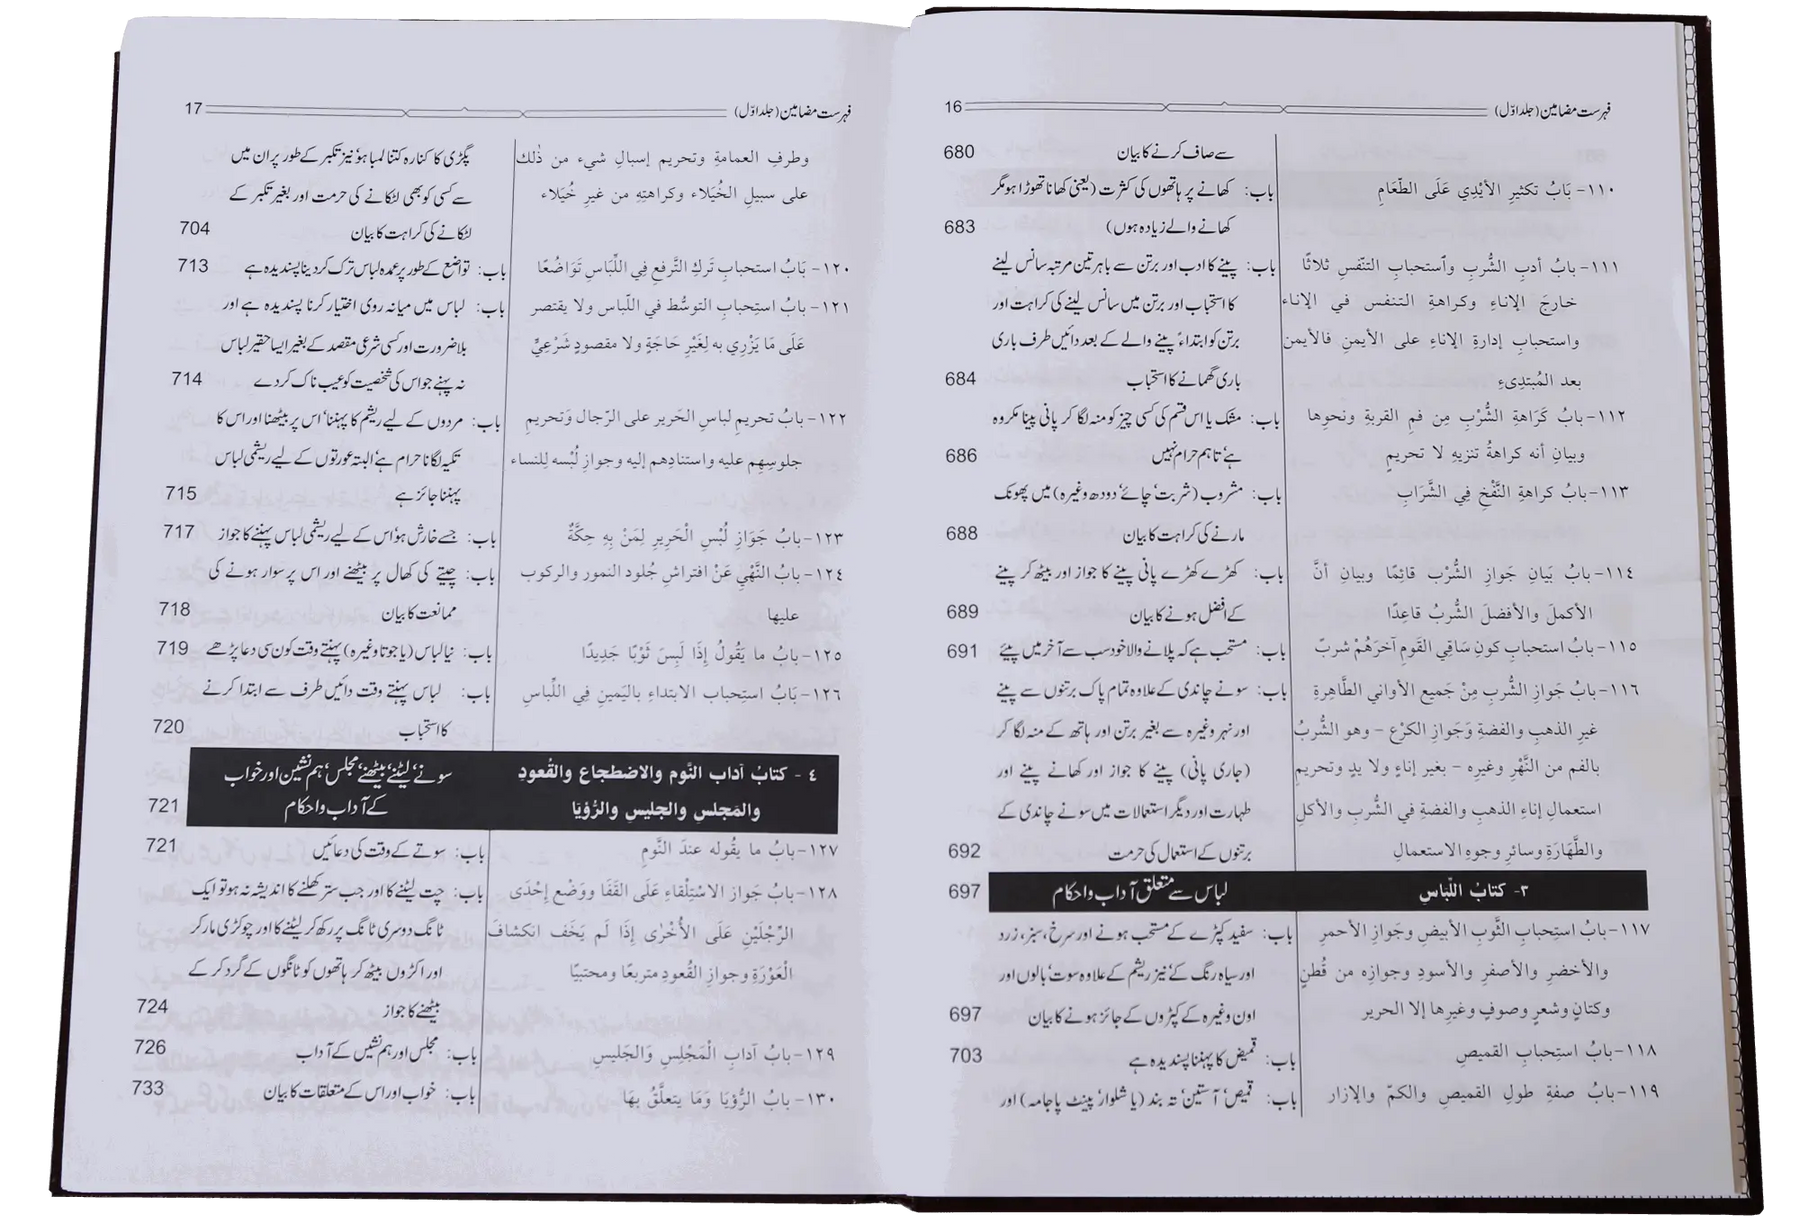 فہرست مضامین (جلد اوّل) 16
سے صاف کرنے کا بیان 680
١١٠- بَابُ تكثيرِ الأيْدِي عَلَى الطّعَامِ باب: کھانے پر ہاتھوں کی کثرت (یعنی کھانا تھوڑا ہو مگر
کھانے والے زیادہ ہوں) 683
١١١- بابُ أدبِ الشُّربِ وٱستحبابِ التنّفسِ ثلاثًا باب: پینے کا ادب اور برتن سے باہر تین مرتبہ سانس لینے
خارجَ الإناءِ وكراهةِ التنفس في الإناء کا استحباب اور برتن میں سانس لینے کی کراہت اور
واستحبابِ إدارةِ الإناءِ على الأيمنِ فالأيمن برتن کو ابتداءً پینے والے کے بعد دائیں طرف باری
بعد المُبتدِىءِ باری گھمانے کا استحباب 684
١١٢- بابُ كَرَاهةِ الشُّرْبِ مِن فمِ القربةِ ونحوِها باب: مشک یا اس قسم کی کسی چیز کو منہ لگا کر پانی پینا مکروہ
وبيانِ أنه كراهةُ تنزيهِ لا تحريمٍ ہے' تاہم حرام نہیں 686
١١٣- بابُ كراهةِ النَّفْخِ فِي الشَّرَابِ باب: مشروب (شربت' چائے' دودھ وغیرہ) میں پھونک
مارنے کی کراہت کا بیان 688
١١٤- بابُ بَيَانِ جَوازِ الشُّرْب قائِمًا وبيانِ أنَّ باب: کھڑے کھڑے پانی پینے کا جواز اور بیٹھ کر پینے
الأكملَ والأفضلَ الشُّربُ قاعِدًا کے افضل ہونے کا بیان 689
١١٥- بابُ استحبابِ كونِ سَاقِي القَومِ آخرَهُمْ شربًا باب: مستحب ہے کہ پلانے والا خود سب سے آخر میں پیئے 691
١١٦- بابُ جَوازِ الشُّربِ مِنْ جَميعِ الأواني الطَّاهِرةِ باب: سونے چاندی کے علاوہ تمام پاک برتنوں سے پینے
غيرِ الذهبِ والفضةِ وَجَوازِ الكرْعِ - وهو الشُّربُ اور نہر وغیرہ سے بغیر برتن اور ہاتھ کے منہ لگا کر
بالفم من النَّهْرِ وغيرِه - بغير إناءٍ ولا يدٍ وتحريمِ (جاری پانی) پینے کا جواز اور کھانے پینے اور
استعمالِ إناءِ الذهبِ والفضةِ في الشُّربِ والأكلِ طہارت اور دیگر استعمالات میں سونے چاندی کے
والطَّهَارَةِ وسائرِ وجوهِ الاستعمالِ برتنوں کے استعمال کی حرمت 692
٣- كتابُ اللّبَاسِ لباس سے متعلق آداب و احکام 697
١١٧- بابُ استِحبابِ الثَّوبِ الأبيضِ وجَوازِ الأحمرِ باب: سفید کپڑے کے مستحب ہونے اور سرخ، سبز، زرد
والأخضرِ والأصفرِ والأسودِ وجوازِه من قُطنٍ اور سیاہ رنگ کے' نیز ریشم کے علاوہ سوت' بالوں اور
وكتانٍ وشعرٍ وصوفٍ وغيرِها إلا الحرير اون وغیرہ کے کپڑوں کے جائز ہونے کا بیان 697
١١٨- بابُ استِحبابِ القميصِ باب: قمیض کا پہننا پسندیدہ ہے 703
١١٩- بابُ صفةِ طولِ القميصِ والكمّ والإزار باب: قمیص' آستین' تہ بند (یا شلوار' پینٹ پاجامہ) اور
فہرست مضامین (جلد اوّل) 17
وطرفِ العمامةِ وتحريم إسبالِ شيء من ذٰلك پگڑی کا کنارہ کتنا لمبا ہو' نیز تکبر کے طور پر ان میں
على سبيلِ الخُيَلاء وكراهتِهِ من غيرِ خُيَلاء سے کسی کو بھی لٹکانے کی حرمت اور بغیر تکبر کے
لٹکانے کی کراہت کا بیان 704
١٢٠- بَابُ استحبابِ تَركِ التَّرفعِ فِي اللِّبَاسِ تَوَاضُعًا باب: تواضع کے طور پر عمدہ لباس ترک کر دینا پسندیدہ ہے 713
١٢١- بابُ استِحبابِ التوسُّط في اللّباس ولا يقتصر باب: لباس میں میانہ روی اختیار کرنا پسندیدہ ہے اور
عَلَى مَا يَزْرِي به لِغَيْرِ حَاجَةٍ ولا مقصودٍ شَرْعِيٍّ بلا ضرورت اور کسی شرعی مقصد کے بغیر ایسا حقیر لباس
نہ پہنے جو اس کی شخصیت کو عیب ناک کر دے 714
١٢٢- بابُ تحريمِ لباسِ الحَرير على الرّجال وَتحريمِ باب: مردوں کے لیے ریشم کا پہننا' اس پر بیٹھنا اور اس کا
جلوسِهِم عليه واستنادِهم إليه وجوازِ لُبْسه لِلنساء تکیہ لگانا حرام ہے' البتہ عورتوں کے لیے ریشمی لباس
پہننا جائز ہے 715
١٢٣- بابُ جَوَازِ لُبْسِ الْحَرِيرِ لِمَنْ بِهِ حِكَّةٌ باب: جسے خارش ہو' اس کے لیے ریشمی لباس پہننے کا جواز 717
١٢٤- بابُ النَّهْيِ عَنْ افتراشِ جُلود النمور والركوب باب: چیتے کی کھال پر بیٹھنے اور اس پر سوار ہونے کی
عليها ممانعت کا بیان 718
١٢٥- بابُ ما يَقُولُ إذَا لَبِسَ ثَوْبًا جَدِيدًا باب: نیا لباس (یا جوتا وغیرہ) پہنتے وقت کون سی دعا پڑھے 719
١٢٦- بَابُ استِحباب الابتداءِ باليَمينِ فِي اللِّباسِ باب: لباس پہنتے وقت دائیں طرف سے ابتدا کرنے
کا استحباب 720
٤ - كتابُ آداب النَّوم والاضطجاع والقُعودِ سونے' لیٹنے' بیٹھنے' مجلس' ہم نشین اور خواب
والمَجلسِ والجليسِ والرُّؤيَا کے آداب و احکام 721
١٢٧- بابُ ما يقُوله عندَ النَّومِ باب: سوتے کے وقت کی دعائیں 721
١٢٨- بابُ جَواز الاسْتِلْقاءِ عَلَى القَفَا ووَضْعِ إحْدَى باب: چت لیٹنے کا اور جب ستر کھلنے کا اندیشہ نہ ہو تو ایک
الرِّجْلَيْنِ عَلَى الأُخْرى إذَا لَم يَخَف انكشافَ ٹانگ دوسری ٹانگ پر رکھ کر لیٹنے کا اور چوکڑی مار کر
الْعَوْرَةِ وجوازِ القُعودِ متربعًا ومحتبيًا اور اکڑوں بیٹھ کر ہاتھوں کو ٹانگوں کے گرد کر کے
بیٹھنے کا جواز 724
١٢٩- بابُ آدابِ الْمَجْلِسِ وَالجَليسِ باب: مجلس اور ہم نشیں کے آداب 726
١٣٠- بابُ الرُّؤيَا وَمَا يتعلَّقُ بِهَا باب: خواب اور اس کے متعلقات کا بیان 733